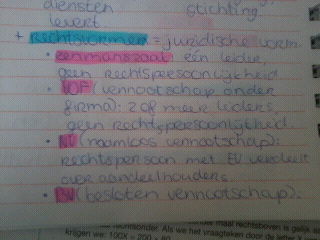 diensten stichting
levert.
+ rechtsvormen = juridische vorm.
• eenmanszaak: eén leider,
geen rechtspersoonlijkheid.
• VOF (vennootschap onder
firma): 2 of meer leiders,
geen rechtspersoonlijkheid
• NV (naamloos vennootschap):
rechtspersoon met EV verdeelt
over aandeelhouders.
• BV (besloten vennootschap):
maal rechtsboven is gelijk aa
rechtsonder. Als we het vraagteken door de letter X
krijgen we: 100X = 200 x 80